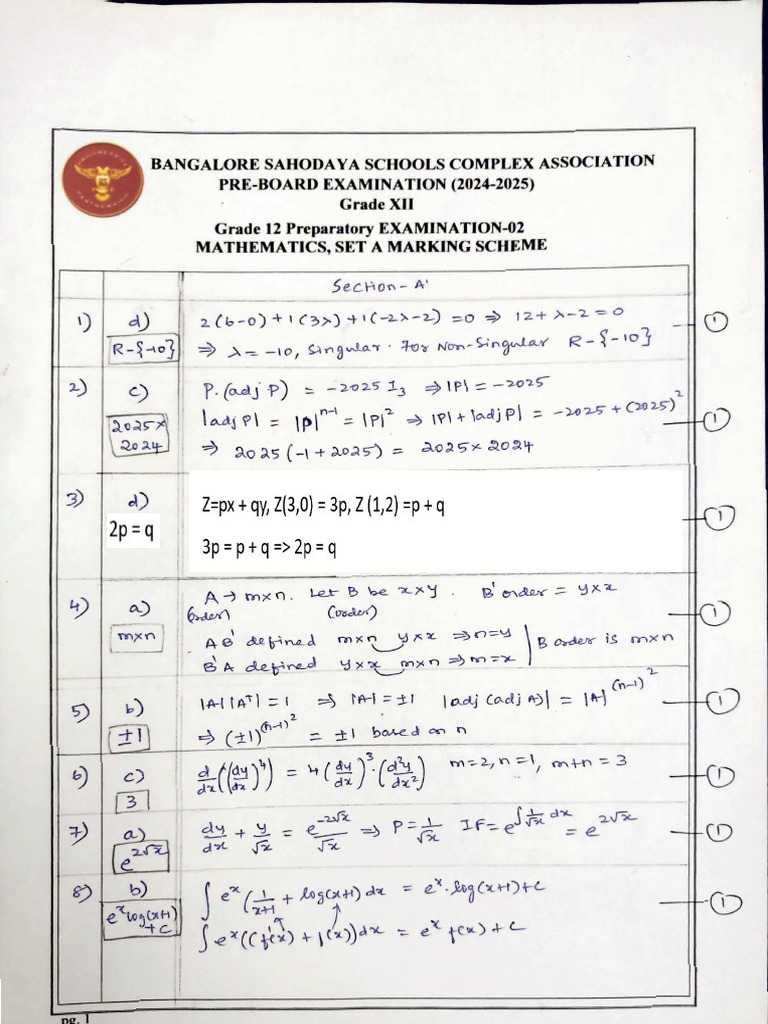 BANGALORE SAHODAYA SCHOOLS COMPLEX ASSOCIATION
PRE-BOARD EXAMINATION (2024-2025)
Grade XII
Grade 12 Preparatory EXAMINATION-02
MATHEMATICS, SET A MARKING SCHEME
Section - A'
1) d) 2(6-0)+1(3λ)+1(-2λ-2) =0 ⇒ 12+λ-2=0 ①
R-{-10} ⇒ λ=-10, Singular. For Non-Singular R-{-10}
2) c) P.(adj P) = -2025 I₃ ⇒|P| = -2025
2025× 2024 |adj P| = |P|ⁿ⁻¹ = |P|² ⇒ |P|+|adj P| = -2025+(2025)² ①
⇒ 2025(-1+2025) = 2025×2024
3) d) Z=px + qy, Z(3,0) = 3p, Z (1,2) =p + q ①
2p = q 3p = p + q => 2p = q
4) a) A → m×n. Let B be x×y. B' order = y×x
(order) (order) ①
m×n AB' defined m×n y×x ⇒n=y | B order is m×n
B'A defined y×x m×n ⇒m=x
5) b) |A||Aᵀ| = 1 ⇒ |A| = ±1 |adj(adj A)| = |A|^(n-1)² ①
±1 ⇒ (±1)^(n-1)² = ±1 based on n
6) c) d/dx((dy/dx)⁴) = 4(dy/dx)³·(d²y/dx²) m=2, n=1, m+n = 3 ①
3
7) a) dy/dx + y/√x = e^(-2√x)/√x ⇒ P = 1/√x IF = e^(∫1/√x dx) = e^(2√x) ①
e^(2√x)
8) b) ∫eˣ(1/(x+1) + log(x+1)dx = eˣ.log(x+1)+C ①
eˣlog(x+1) +C ∫eˣ((f'(x)+f(x))dx = eˣ f(x) + C
pg. 1